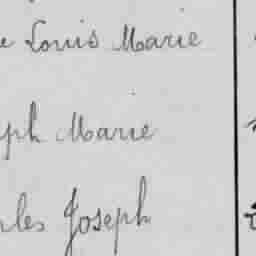 e Louis Marie
ph Marie
les Joseph